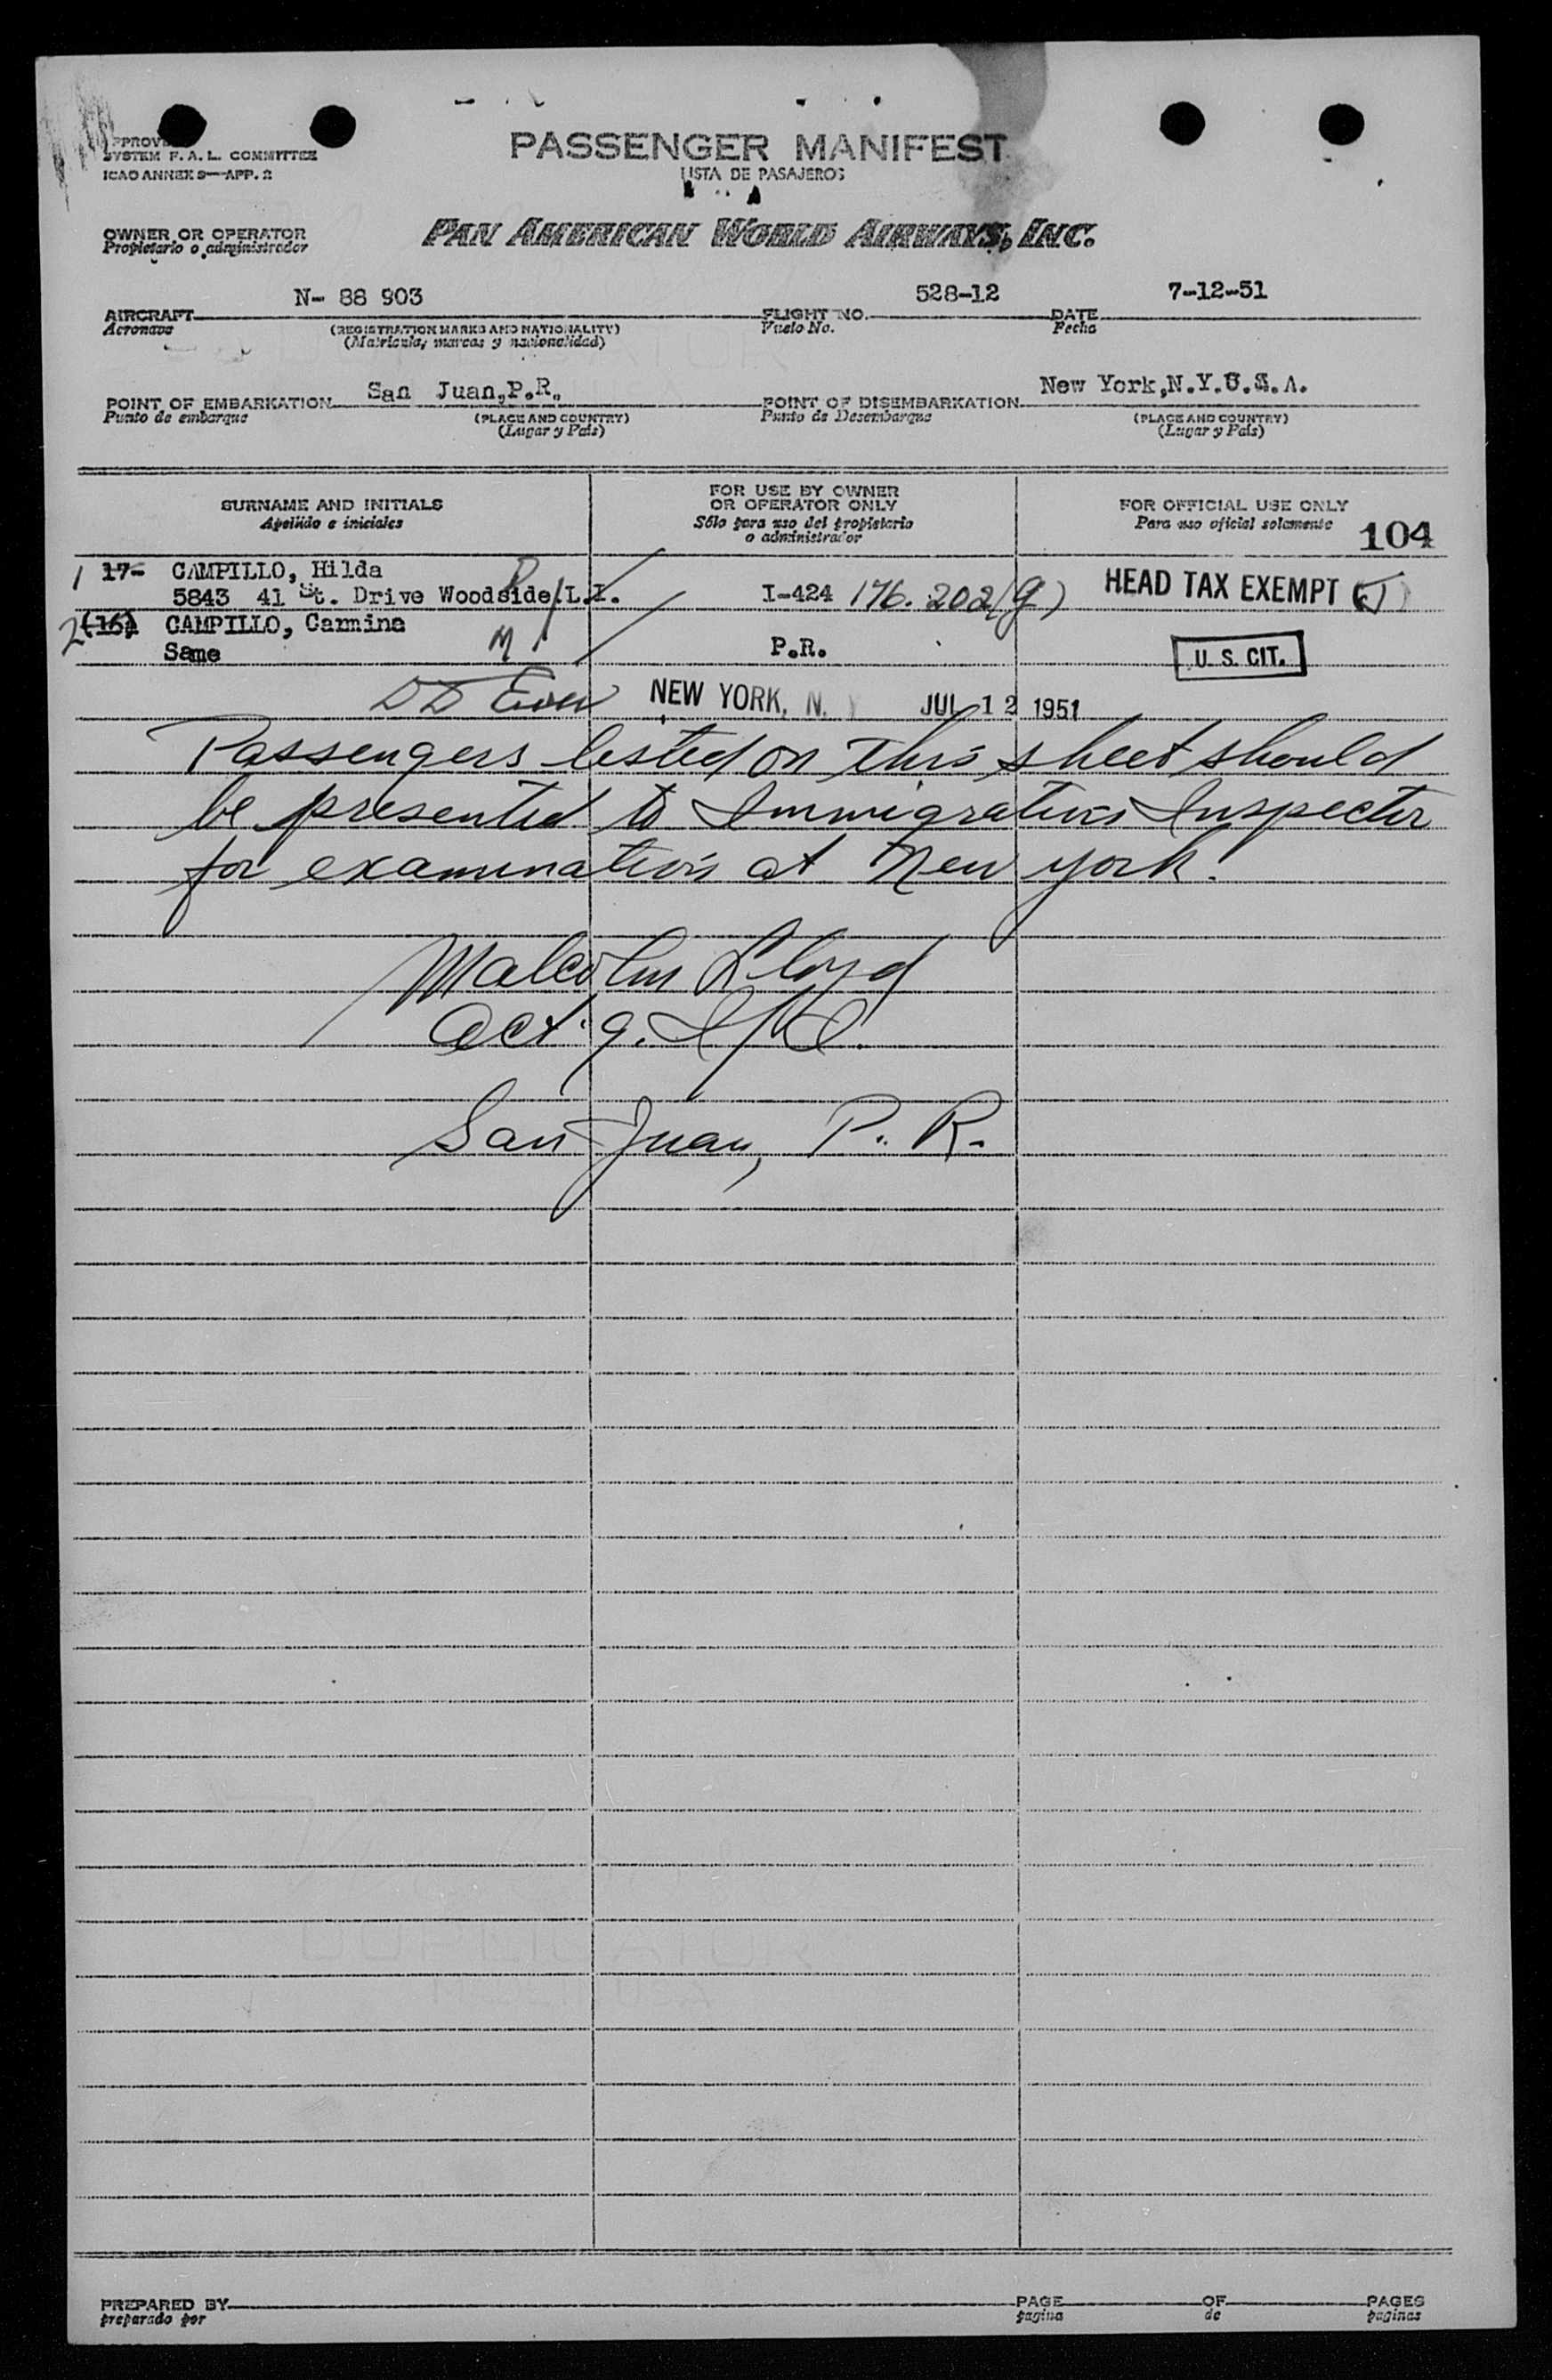 APPROVED
SYSTEM F. A. L. COMMITTEE
ICAO ANNEX 9—APP. 2
PASSENGER MANIFEST
LISTA DE PASAJEROS
OWNER OR OPERATOR
Propietario o administrador
PAN AMERICAN WORLD AIRWAYS, INC.
AIRCRAFT N- 88 903 FLIGHT NO. 528-12 DATE 7-12-51
Aeronave (REGISTRATION MARKS AND NATIONALITY) Vuelo No. Fecha
(Matricula, marcas y nacionalidad)
POINT OF EMBARKATION San Juan,P.R. POINT OF DISEMBARKATION New York,N.Y.U.S.A.
Punto de embarque (PLACE AND COUNTRY) Punto de Desembarque (PLACE AND COUNTRY)
(Lugar y País) (Lugar y País)
SURNAME AND INITIALS
Apellido e iniciales
FOR USE BY OWNER
OR OPERATOR ONLY
Sólo para uso del propietario
o administrador
FOR OFFICIAL USE ONLY
Para uso oficial solamente
104
1 17- CAMPILLO, Hilda
5843 41 St. Drive Woodside,L.I. I-424 176.202(g) HEAD TAX EXEMPT
2 (16) CAMPILLO, Carmina
Same M P.R. U. S. CIT.
NEW YORK, N. Y JUL 12 1951
Passengers listed on this sheet should
be presented to Immigration Inspector
for examination at New York.
Malcolm Lloyd
San Juan, P. R.
PREPARED BY PAGE OF PAGES
preparado por pagina de paginas